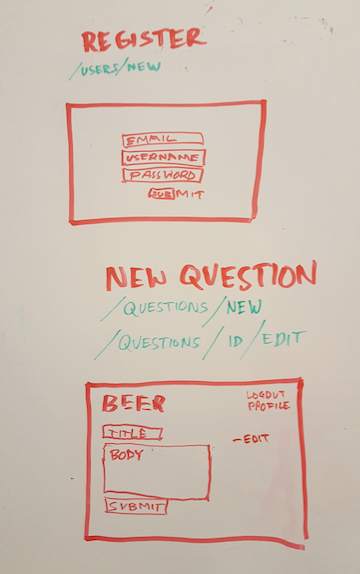 REGISTER
/USERS/NEW
EMAIL
USERNAME
PASSWORD
SUBMIT
NEW QUESTION
/QUESTIONS/NEW
/QUESTIONS/ID/EDIT
BEER
LOGOUT
PROFILE
TITLE
-EDIT
BODY
SUBMIT